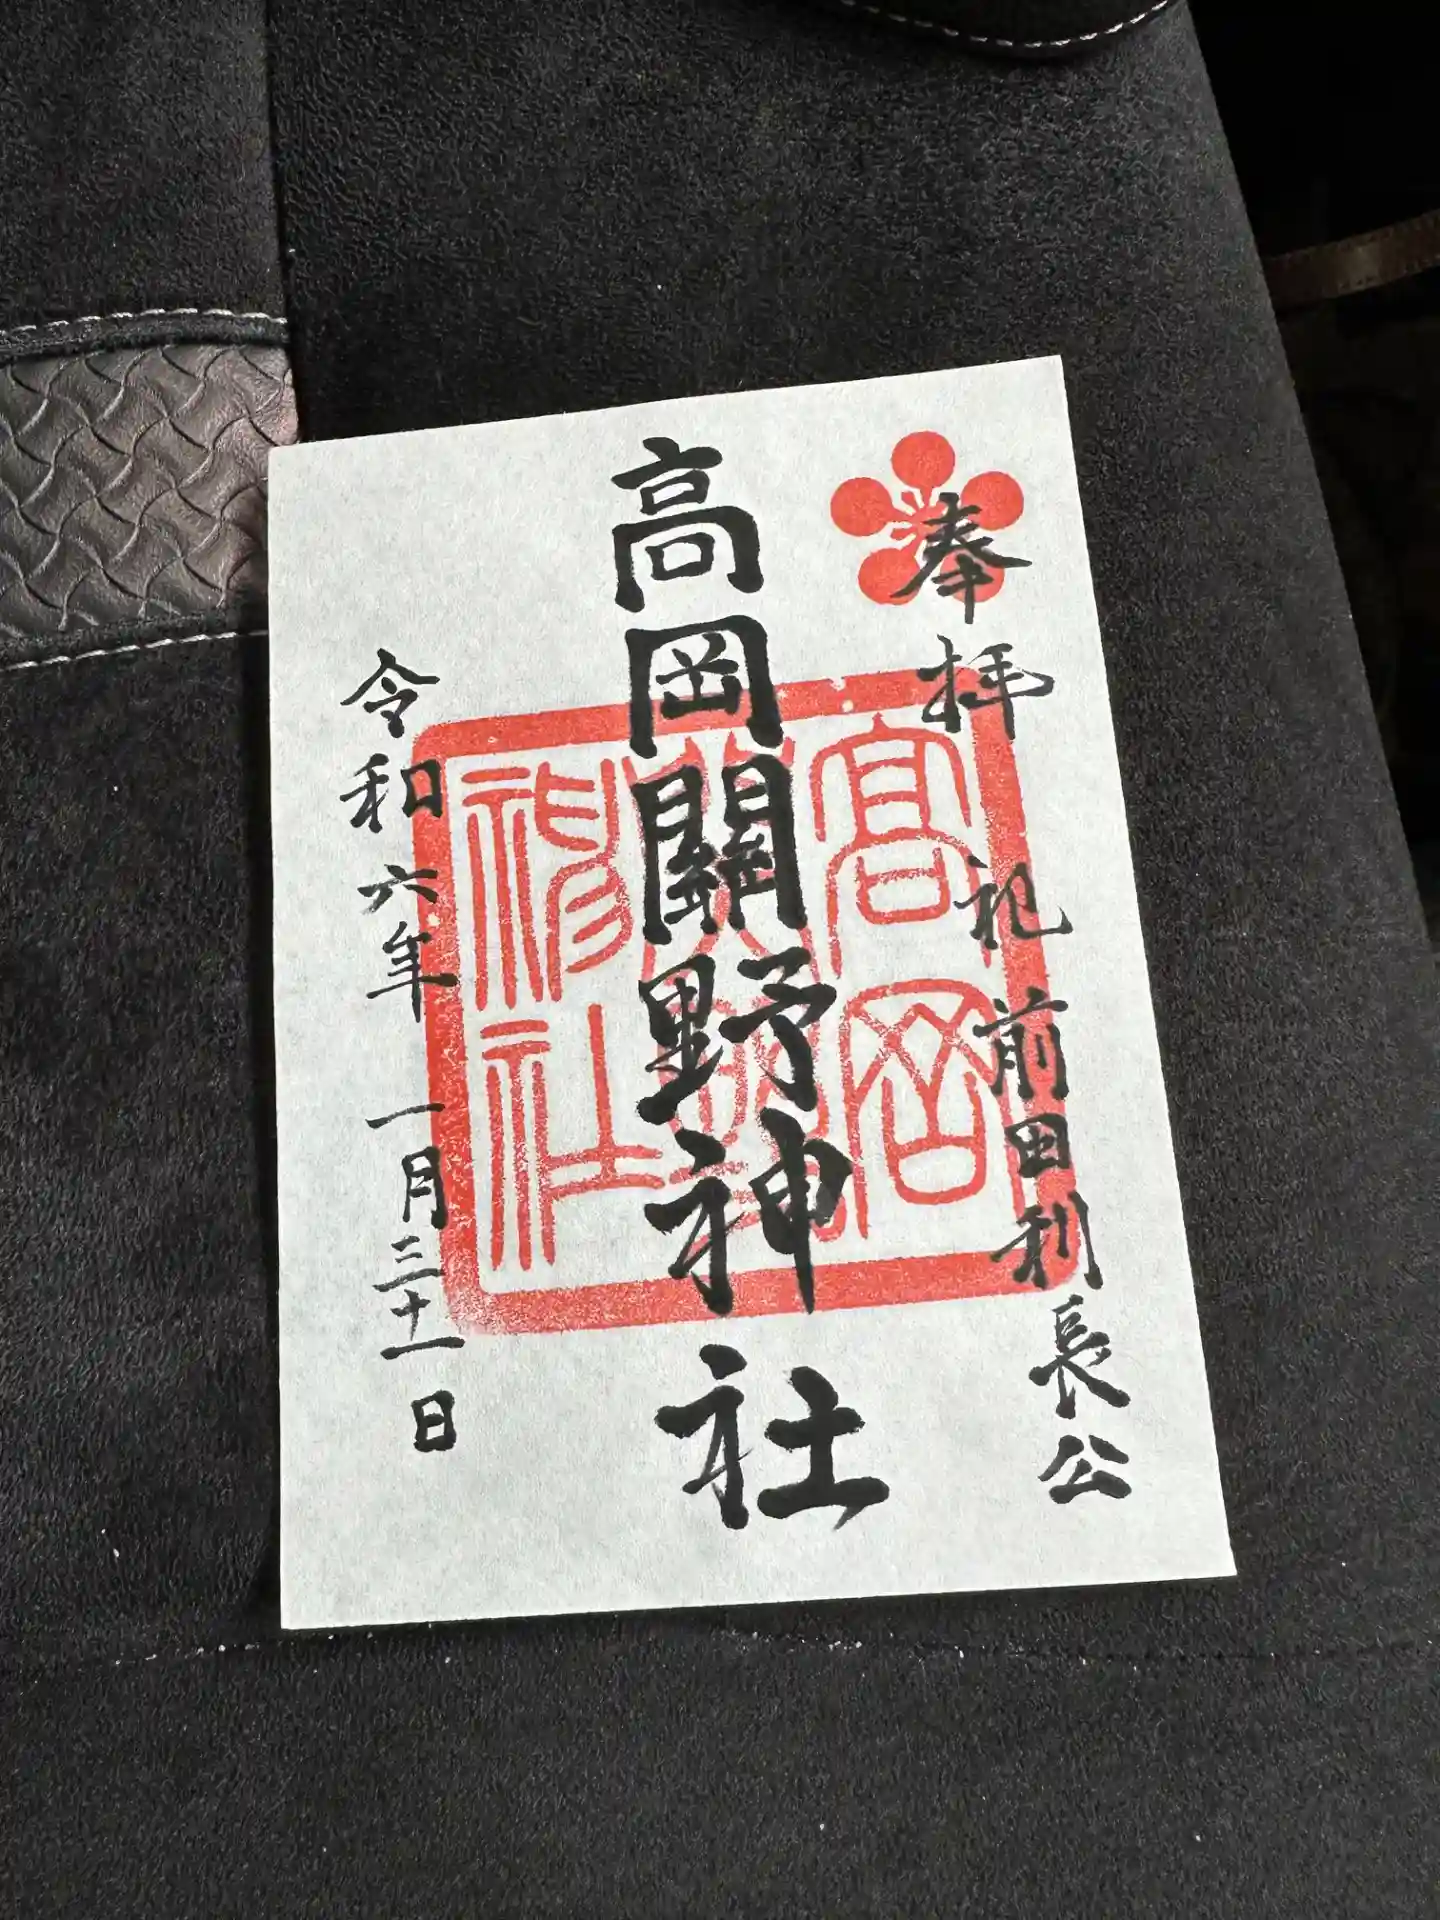 奉拝 祀 前田利長公
高岡關野神社
令和六年 一月三十一日
高岡
神社